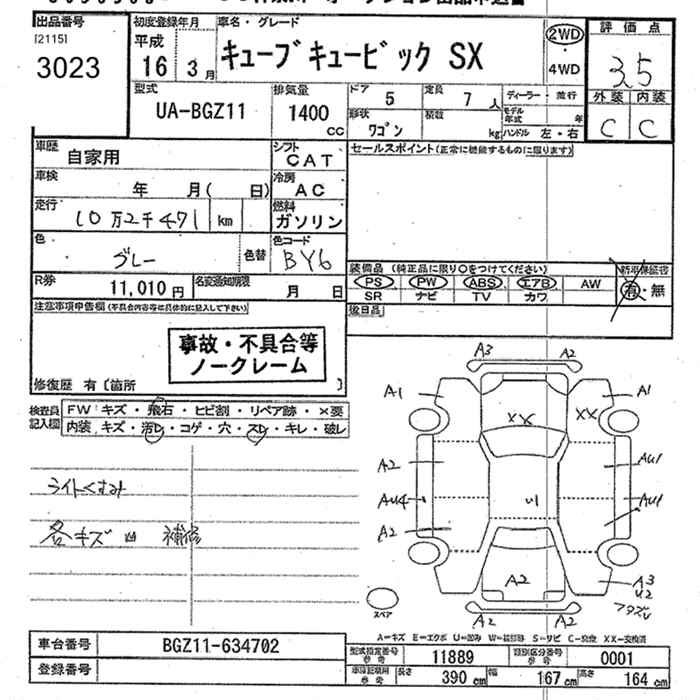 出品番号
[2115]
3023
初度登録年月
平成
16 3月
車名・グレード
キューブキュービック SX
2WD
・
4WD
評価点
3.5
外装 内装
C C
型式
UA-BGZ11
排気量
1400
cc
ドア 5
定員 7人
ディーラー・並行
形状 ワゴン
積載 kg
モデル年式 年
ハンドル 左・右
車歴 自家用
シフト CAT
セールスポイント(正常に機能するものに限ります)
車検 年 月( 日)
冷房 AC
走行 10万2千471 km
燃料 ガソリン
色 グレー
色替
色コード BY6
装備品 (純正品に限り○をつけてください)
新車保証書
PS PW ABS エアB AW
有・無
SR ナビ TV カワ
R券 11,010円
名変通知期限 月 日
後日品
注意事項申告欄(不具合内容等は具体的に記入して下さい)
事故・不具合等
ノークレーム
修復歴 有〔箇所 〕
検査員記入欄
FW キズ・飛石・ヒビ割・リペア跡・×要
内装 キズ・汚れ・コゲ・穴・スレ・キレ・破レ
ライトくすみ
各キズ凹 補修
A3 A2
A1 XX XX A1
A2 AU1
AU4 AU1
A2
A2
A3
U2
A2 A2
スペア
A=キズ E=エクボ U=凹み W=波跡 S=サビ C=腐食 XX=交換済
車台番号 BGZ11-634702
登録番号
型式指定番号 参考 11889
類別区分番号 参考 0001
車検証記用 参考 長さ 390 cm 幅 167 cm 高さ 164 cm